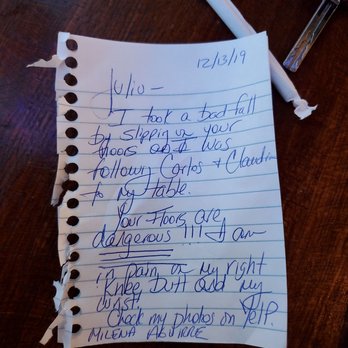 12/13/19
Julio -
I took a bad fall
by slipping on your
floors as I was
following Carlos + Claudia
to my table.
Your Floors are
dangerous !!! I am
in pain on my right
Knee, Butt and my
wrist!
Check my photos on Yelp.
MILENA AGUIRRE